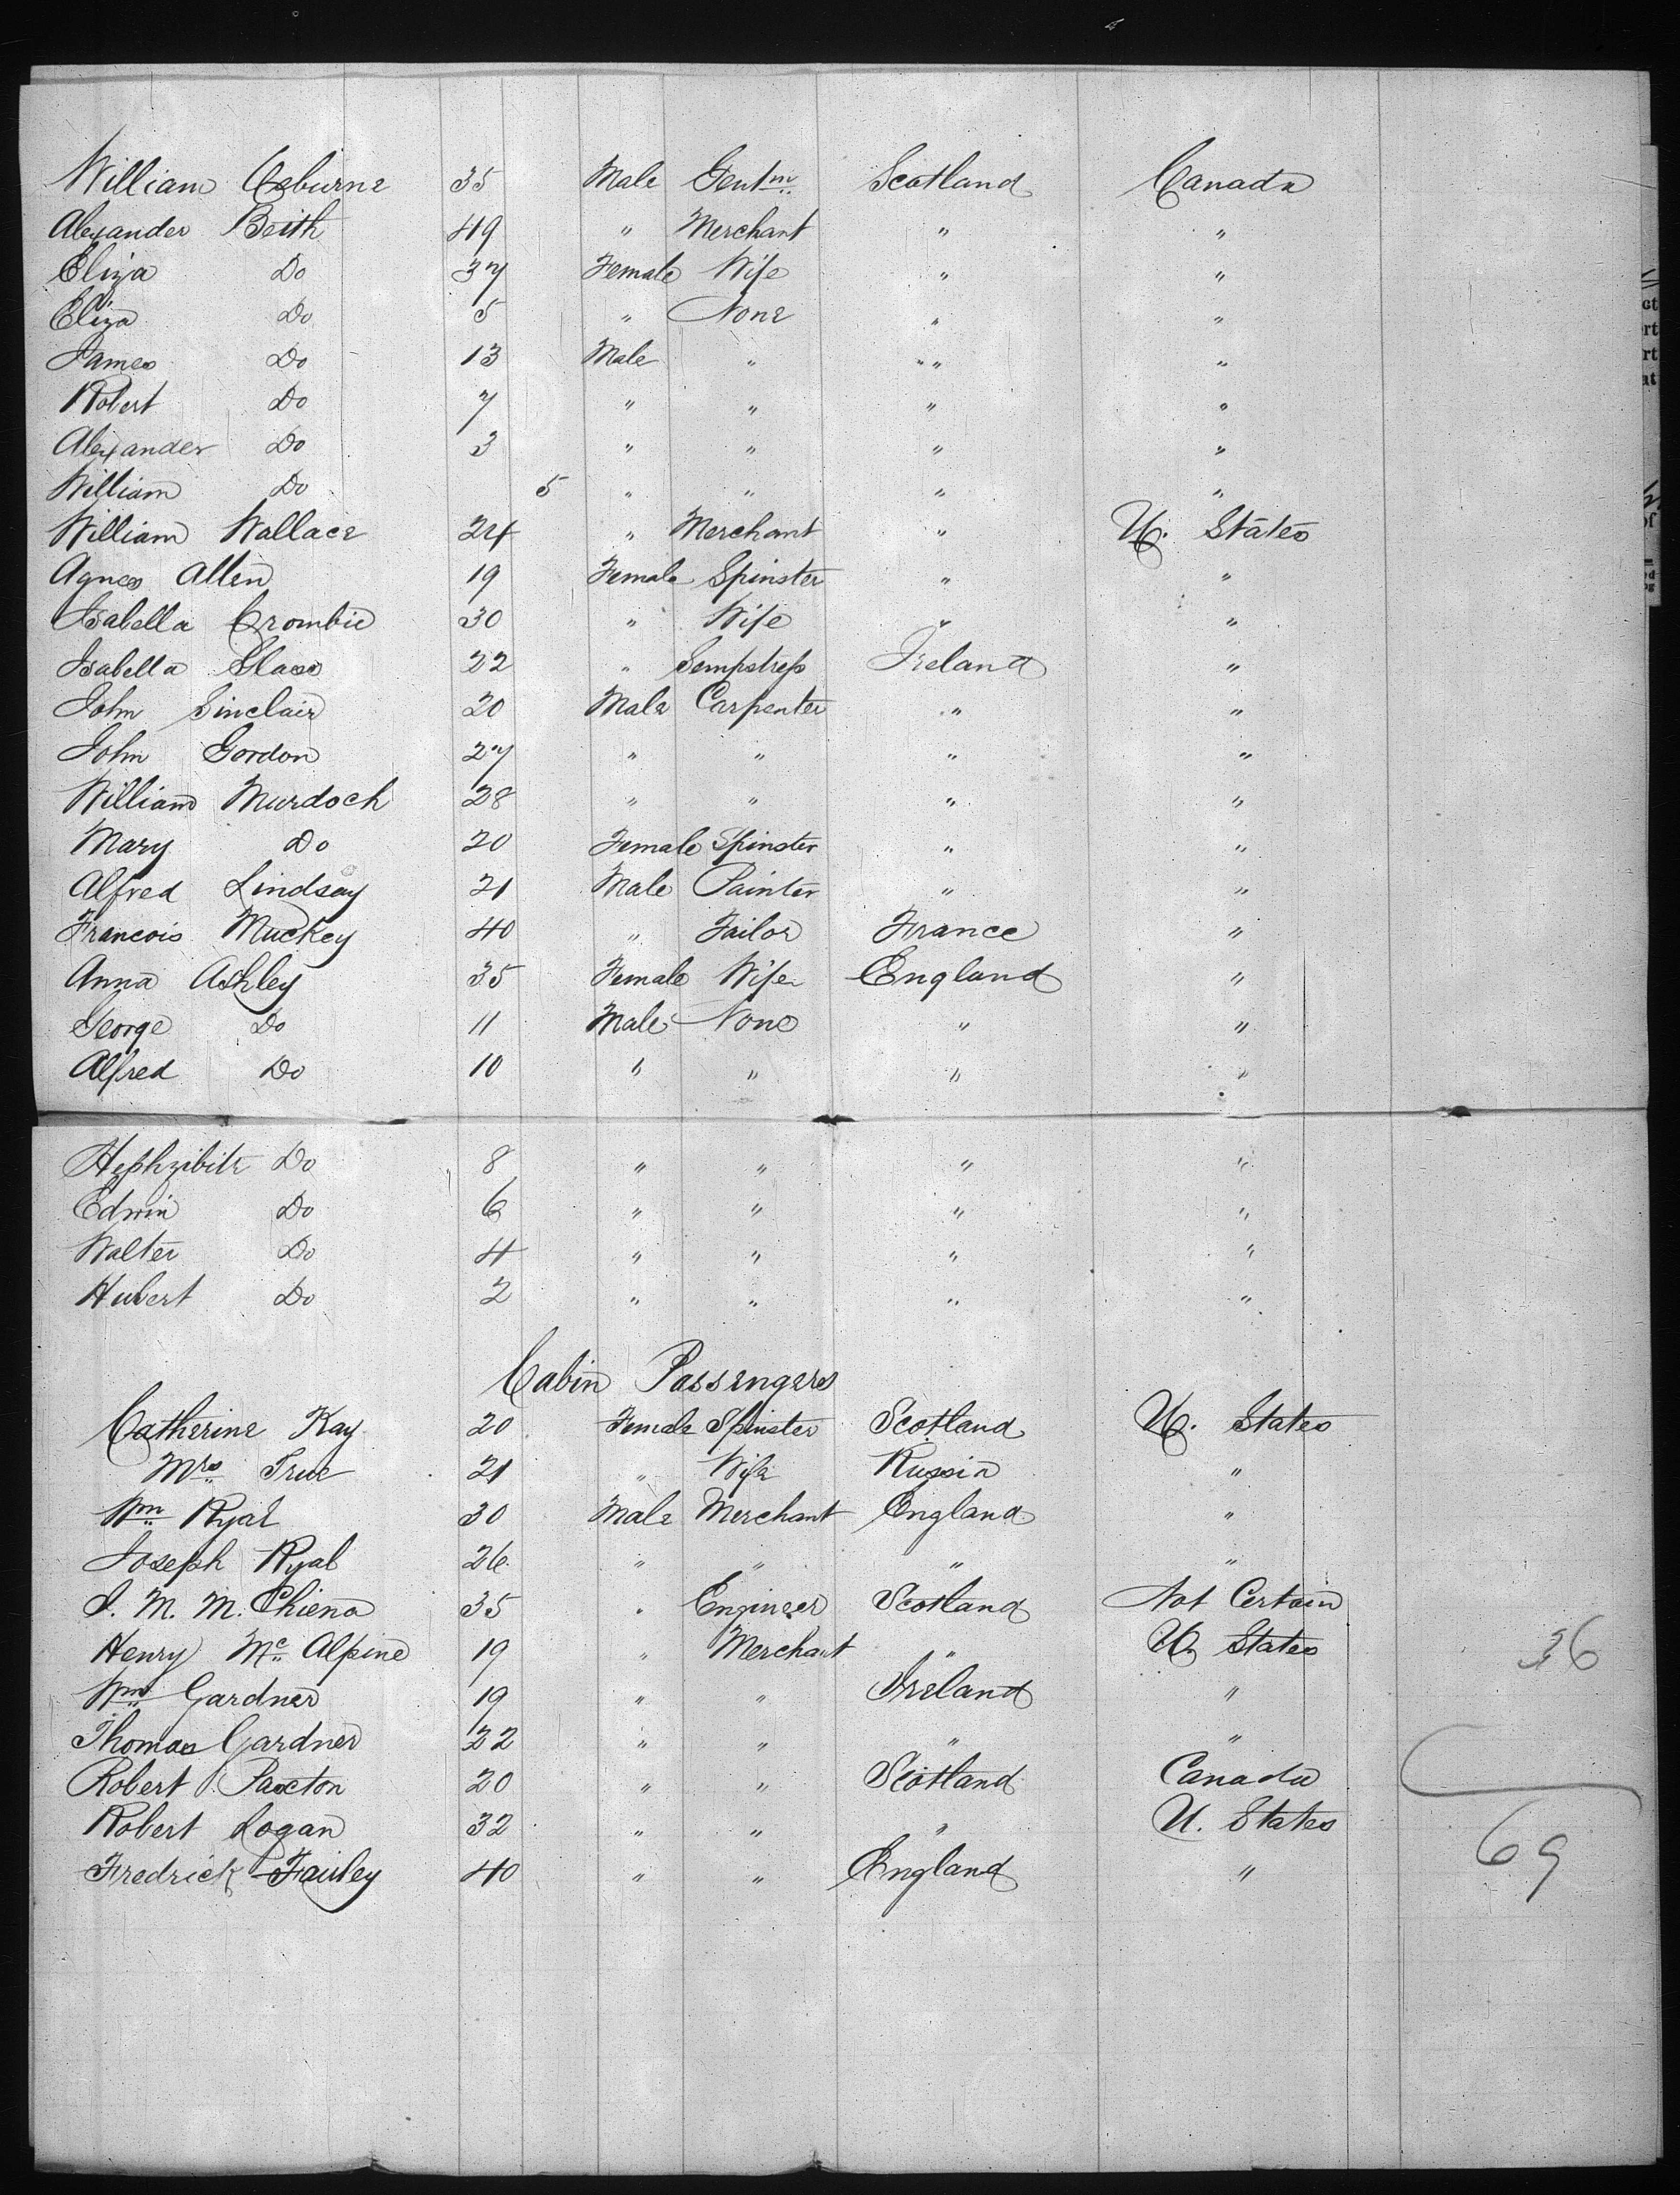 William Osburne 35 Male Gentm. Scotland Canada
Alexander Beith 49 " Merchant " "
Eliza Do 37 Female Wife " "
Eliza Do 5 " None " "
James Do 13 Male " " " "
Robert Do 7 " " " "
Alexander Do 3 " " " "
William Do 5 " " " "
William Wallace 24 " Merchant " U. States
Agnes Allen 19 Female Spinster " "
Isabella Crombie 30 " Wife " "
Isabella Glass 22 " Sempstress Ireland "
John Sinclair 20 Male Carpenter " "
John Gordon 27 " " " "
William Murdoch 28 " " " "
Mary Do 20 Female Spinster " "
Alfred Lindsay 21 Male Painter " "
Francois Muckey 40 " Tailor France "
Anna Ashley 35 Female Wife England "
George Do 11 Male None " "
Alfred Do 10 " " " "
Do 8 " " " "
Edwin Do 6 " " " "
Walter Do 4 " " " "
Hubert Do 2 " " " "
Cabin Passengers
Catherine Kay 20 Female Spinster Scotland U. States
Mrs True 21 " Wife Russia "
Wm Ryal 30 Male Merchant England "
Joseph Ryal 26 " " " "
J. M. M. Chiene 35 " Engineer Scotland Not Certain
Henry Mc Alpine 19 " Merchant " U. States
36
Wm Gardner 19 " " Ireland "
Thomas Gardner 22 " " " "
Robert Paxton 20 " " Scotland Canada
Robert Logan 32 " " " U. States
69
Fredrick 40 " " England "